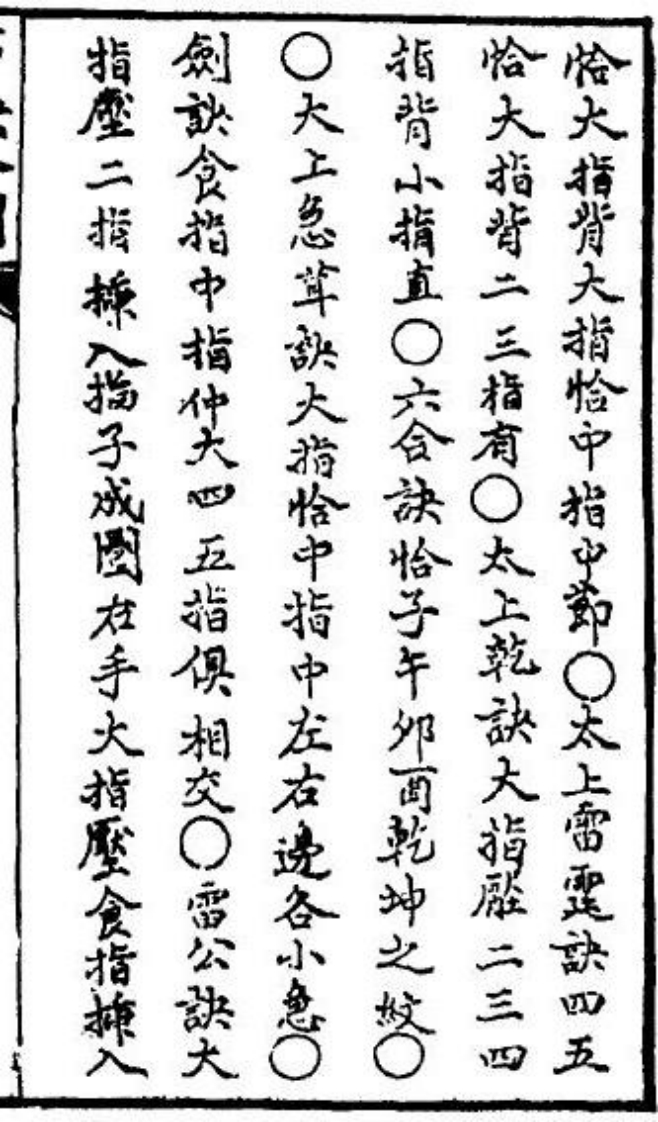 恰大指背大指恰中指中節〇太上雷霆訣四五
恰大指背二三指有〇太上乾訣大指壓二三四
指背小指直〇六合訣恰子午卯酉乾坤之紋〇
〇大上急茸訣大指恰中指中左右邊各小急〇
劍訣食指中指仲大四五指俱相交〇雷公訣大
指壓二指揀入指子成圈右手大指壓食指揀入